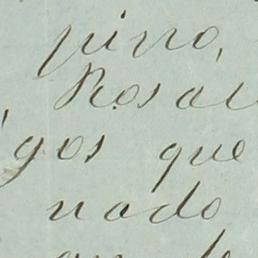 pino,
Rosal
igos que
nado